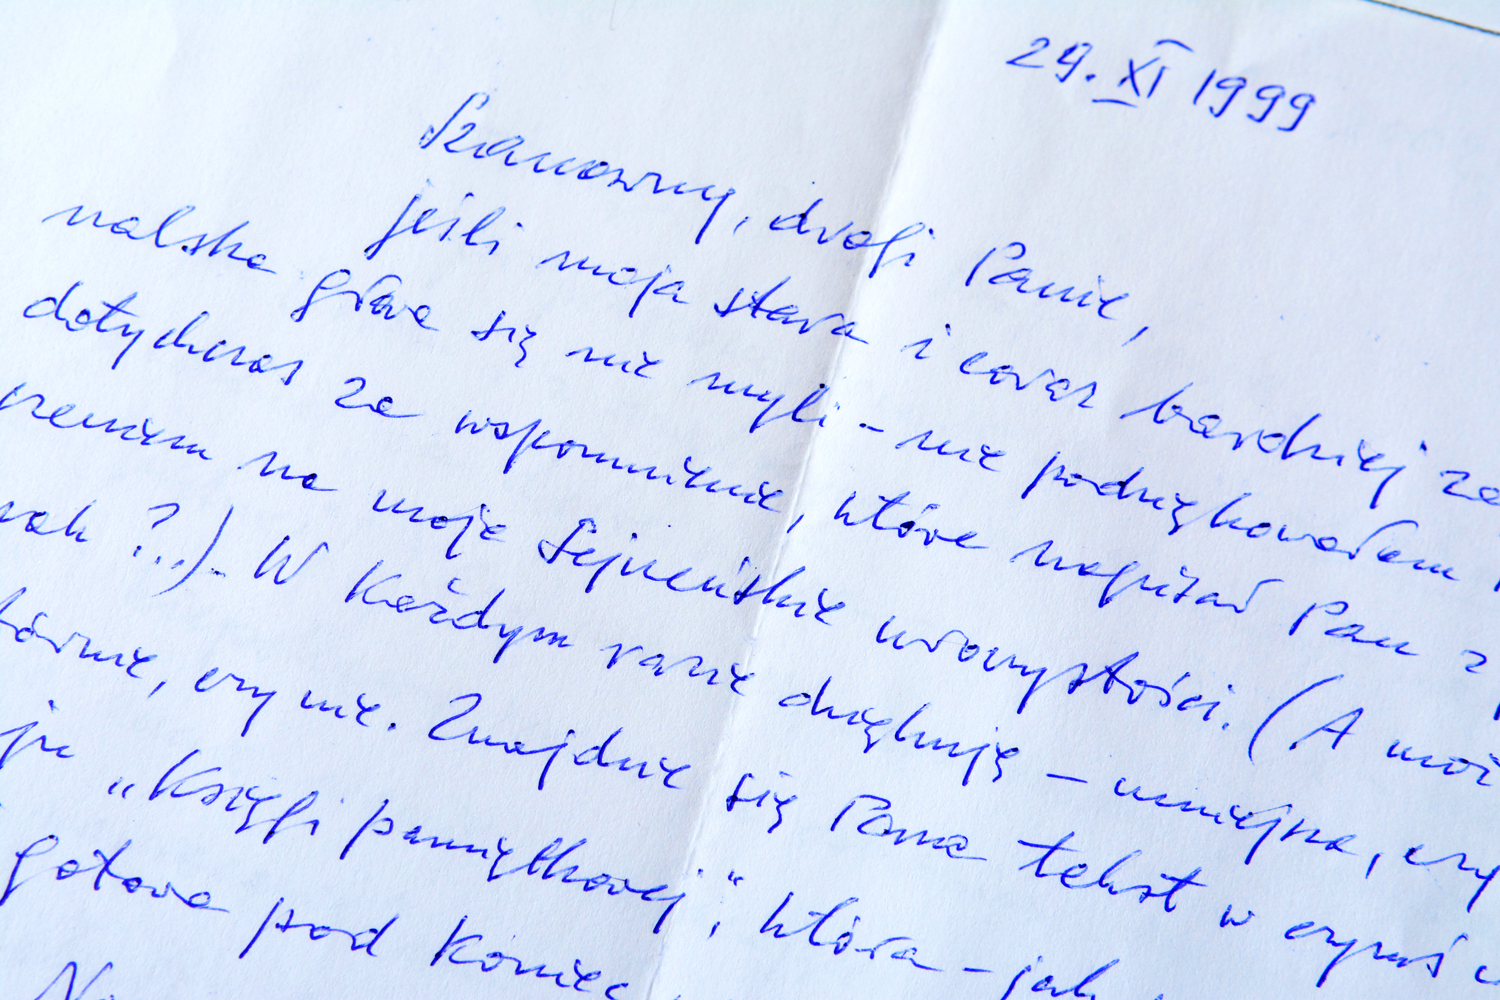 29. XI 1999
Szanowny, drogi Panie,
jeśli moja stara i coraz bardziej za
walska głowa się nie myli - nie podziękowałem
dotychczas za wspomnienie, które napisał Pan z
na moje Sejneńskie uroczystości. (A moż
?..). W każdym razie dziękuję - umiejna, czy
czy nie. Znajdzie się Pana tekst w czymś w
"Księgi pamiątkowej", która - jak
gotowa pod koniec